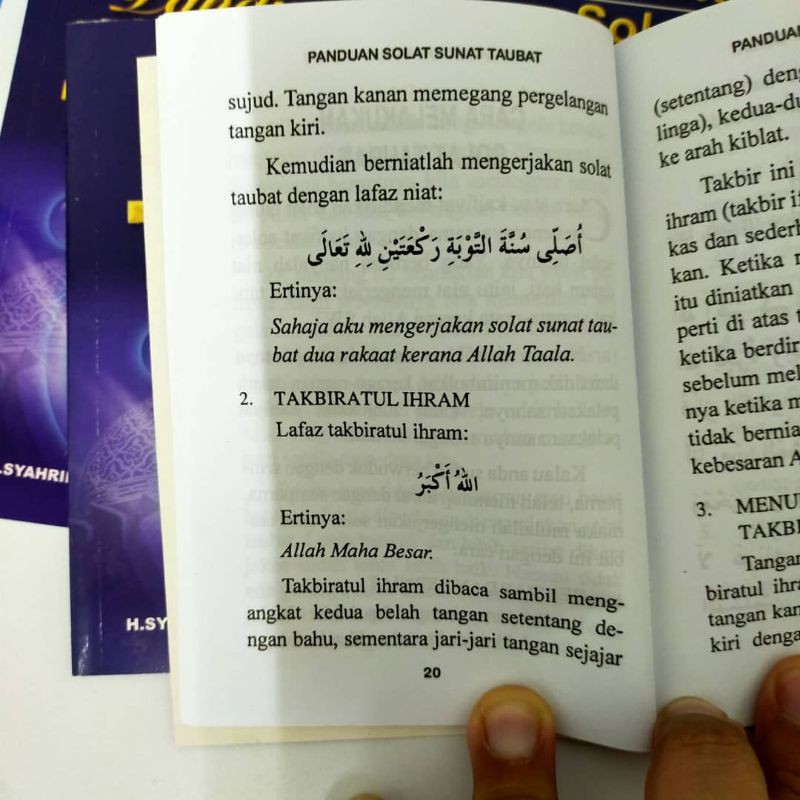 PANDUAN SOLAT SUNAT TAUBAT
sujud. Tangan kanan memegang pergelangan
tangan kiri.
Kemudian berniatlah mengerjakan solat
taubat dengan lafaz niat:
أُصَلِّى سُنَّةَ التَّوْبَةِ رَكْعَتَيْنِ لِلّٰهِ تَعَالَى
Ertinya:
Sahaja aku mengerjakan solat sunat tau-
bat dua rakaat kerana Allah Taala.
2. TAKBIRATUL IHRAM
Lafaz takbiratul ihram:
اَللّٰهُ أَكْبَرُ
Ertinya:
Allah Maha Besar.
Takbiratul ihram dibaca sambil meng-
angkat kedua belah tangan setentang de-
ngan bahu, sementara jari-jari tangan sejajar
20
PANDUAN
(setentang)
linga), kedua-du
ke arah kiblat.
Takbir ini
ihram (takbir
kas dan
kan. Ketika
itu diniatkan
perti di atas
ketika berdir
sebelum mel
nya ketika
tidak bernia
kebesaran A
3. MENU
TAKBI
Tangan
biratul ihra
tangan kan
kiri denga
.SYAHRI
H.SY